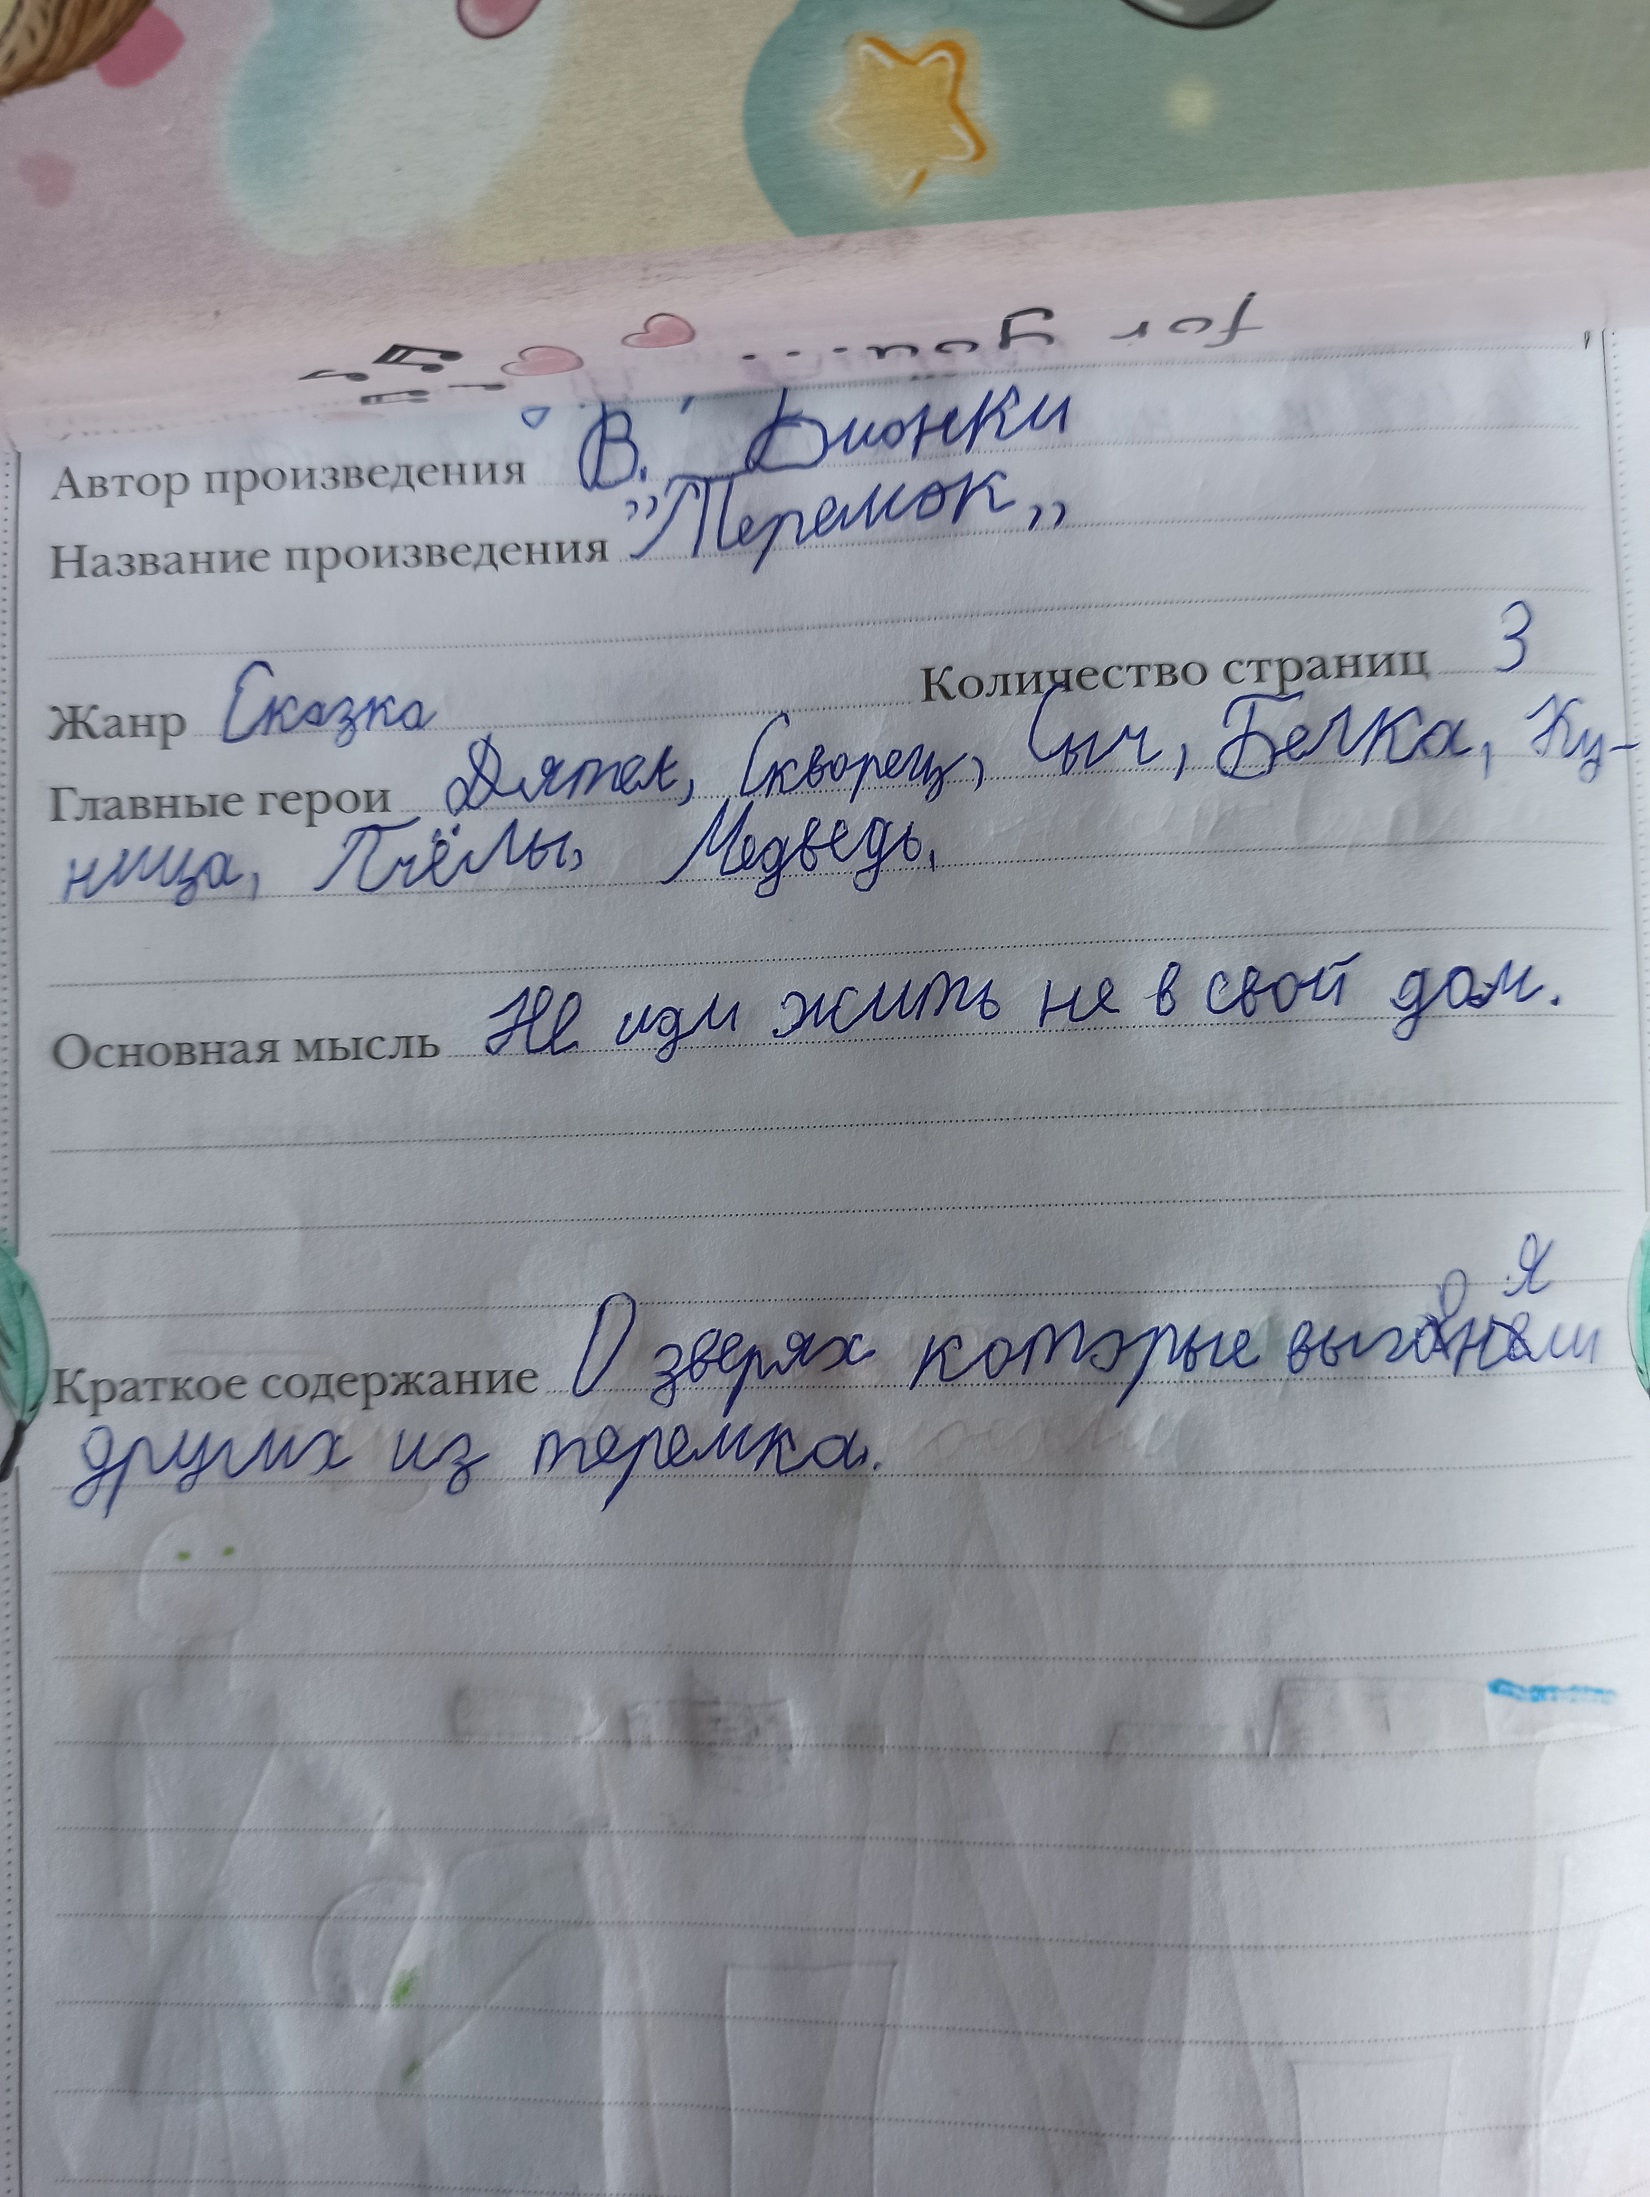 for you...
Автор произведения В. Бионки
Название произведения "Теремок"
Жанр Сказка Количество страниц 3
Главные герои Дятел, Скворец, Сыч, Белка, Ку-
ница, Пчёлы, Медведь.
Основная мысль Не иди жить не в свой дом.
Краткое содержание О зверях которые выгоняли
других из теремка.